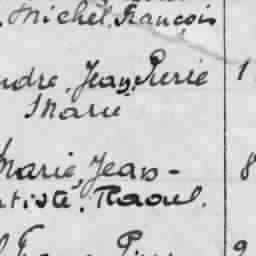 Michel, François
ndre, Jean, Pierre 1
Marie
Marie, Jean- 8
tiste, Raoul.
9